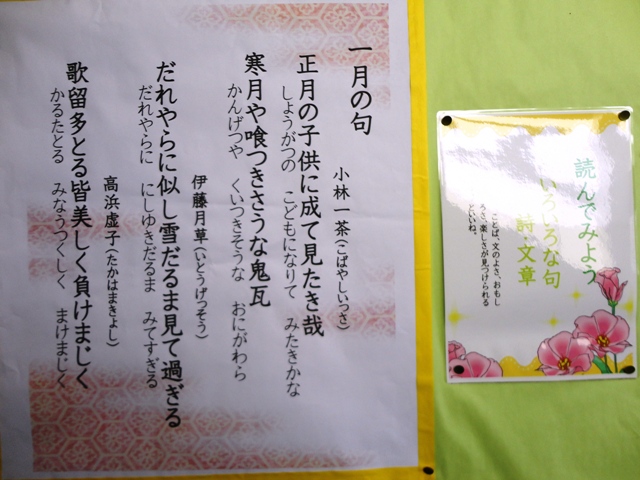 一月の句
正月の子供に成て見たき哉
しょうがつの　こどもになりて　みたきかな
小林一茶(こばやしいっさ)
寒月や喰つきさうな鬼瓦
かんげつや　くいつきそうな　おにがわら
だれやらに似し雪だるま見て過ぎる
だれやらに　にしゆきだるま　みてすぎる
伊藤月草(いとうげっそう)
歌留多とる皆美しく負けまじく
かるたとる　みなうつくしく　まけまじく
高浜虚子(たかはまきょし)
読んでみよう
いろいろな句
詩・文章
ことば、文のよさ、おもし
ろさ、楽しさが見つけられる
といいね。